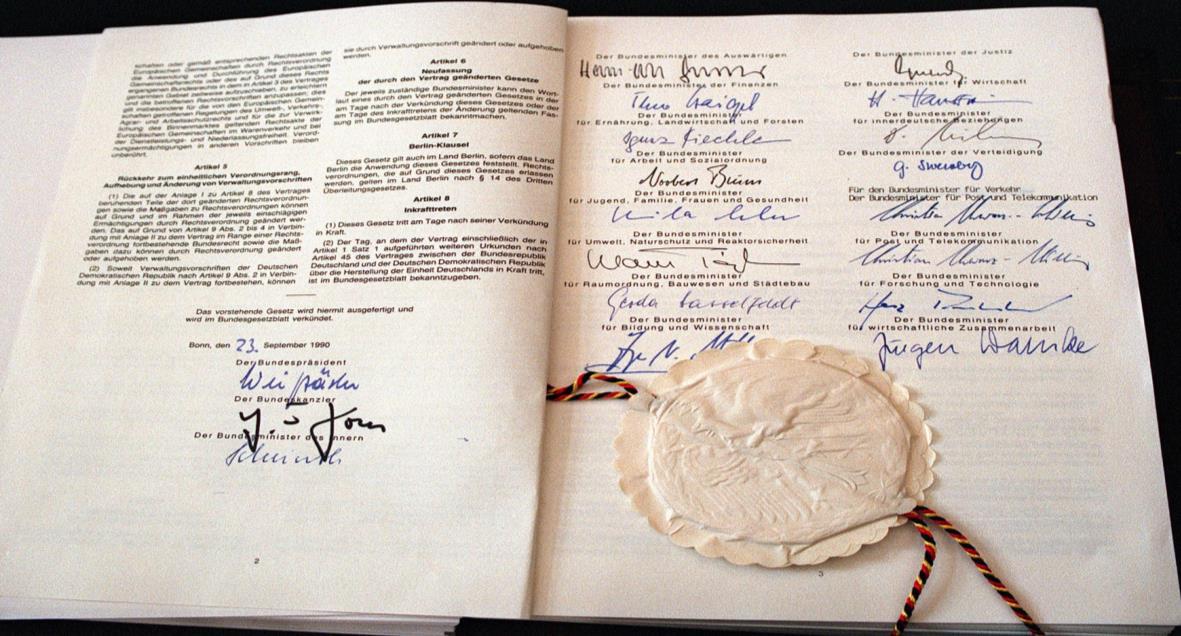 schaften oder gemäß entsprechenden Rechtsakten der
Europäischen Gemeinschaften durch Rechtsverordnung
die Anwendung und Durchführung des Europäischen
Gemeinschaftsrechts oder des auf Grund dieses Rechts
ergangenen Bundesrechts in dem in Artikel 3 des Vertrages
genannten Gebiet zeitweise aufzuschieben, zu erleichtern
und die betroffenen Rechtsvorschriften anzupassen; dies
gilt insbesondere für die von den Europäischen Gemein-
schaften getroffenen Regelungen des Umwelt-, Verkehrs-,
Agrar- und Arbeitsschutzrechts und für die zur Verwirk-
lichung des Binnenmarktes geltenden Rechtsakte der
Europäischen Gemeinschaften im Warenverkehr und bei
der Dienstleistungs- und Niederlassungsfreiheit. Verord-
nungsermächtigungen in anderen Vorschriften bleiben
unberührt.
Artikel 5
Rückkehr zum einheitlichen Verordnungsrang,
Aufhebung und Änderung von Verwaltungsvorschriften
(1) Die auf der Anlage I zu Artikel 8 des Vertrages
beruhenden Teile der dort geänderten Rechtsverordnun-
gen sowie die Maßgaben zu Rechtsverordnungen können
auf Grund und im Rahmen der jeweils einschlägigen
Ermächtigungen durch Rechtsverordnung geändert wer-
den. Das auf Grund von Artikel 9 Abs. 2 bis 4 in Verbin-
dung mit Anlage II zu dem Vertrag im Range einer Rechts-
verordnung fortbestehende Bundesrecht sowie die Maß-
gaben dazu können durch Rechtsverordnung geändert
oder aufgehoben werden.
(2) Soweit Verwaltungsvorschriften der Deutschen
Demokratischen Republik nach Artikel 9 Abs. 2 in Verbin-
dung mit Anlage II zu dem Vertrag fortbestehen, können
sie durch Verwaltungsvorschrift geändert oder aufgehoben
werden.
Artikel 6
Neufassung
der durch den Vertrag geänderten Gesetze
Der jeweils zuständige Bundesminister kann den Wort-
laut eines durch den Vertrag geänderten Gesetzes in der
am Tage nach der Verkündung dieses Gesetzes oder der
am Tage des Inkrafttretens der Änderung geltenden Fas-
sung im Bundesgesetzblatt bekanntmachen.
Artikel 7
Berlin-Klausel
Dieses Gesetz gilt auch im Land Berlin, sofern das Land
Berlin die Anwendung dieses Gesetzes feststellt. Rechts-
verordnungen, die auf Grund dieses Gesetzes erlassen
werden, gelten im Land Berlin nach § 14 des Dritten
Überleitungsgesetzes.
Artikel 8
Inkrafttreten
(1) Dieses Gesetz tritt am Tage nach seiner Verkündung
in Kraft.
(2) Der Tag, an dem der Vertrag einschließlich der in
Artikel 1 Satz 1 aufgeführten weiteren Urkunden nach
Artikel 45 des Vertrages zwischen der Bundesrepublik
Deutschland und der Deutschen Demokratischen Republik
über die Herstellung der Einheit Deutschlands in Kraft tritt,
ist im Bundesgesetzblatt bekanntzugeben.
Das vorstehende Gesetz wird hiermit ausgefertigt und
wird im Bundesgesetzblatt verkündet.
Bonn, den 23. September 1990
Der Bundespräsident
Der Bundeskanzler
Der Bundesminister des Innern
2
Der Bundesminister des Auswärtigen
Der Bundesminister der Finanzen
Theo Waigel
Der Bundesminister
für Ernährung, Landwirtschaft und Forsten
Ignaz Kiechle
Der Bundesminister
für Arbeit und Sozialordnung
Norbert Blüm
Der Bundesminister
für Jugend, Familie, Frauen und Gesundheit
Der Bundesminister
für Umwelt, Naturschutz und Reaktorsicherheit
Der Bundesminister
für Raumordnung, Bauwesen und Städtebau
Gerda Hasselfeldt
Der Bundesminister
für Bildung und Wissenschaft
Der Bundesminister der Justiz
Der Bundesminister für Wirtschaft
Der Bundesminister
für innerdeutsche Beziehungen
Der Bundesminister der Verteidigung
Für den Bundesminister für Verkehr
Der Bundesminister für Post und Telekommunikation
Der Bundesminister
für Post und Telekommunikation
Der Bundesminister
für Forschung und Technologie
Der Bundesminister
für wirtschaftliche Zusammenarbeit
Jürgen Warnke
3